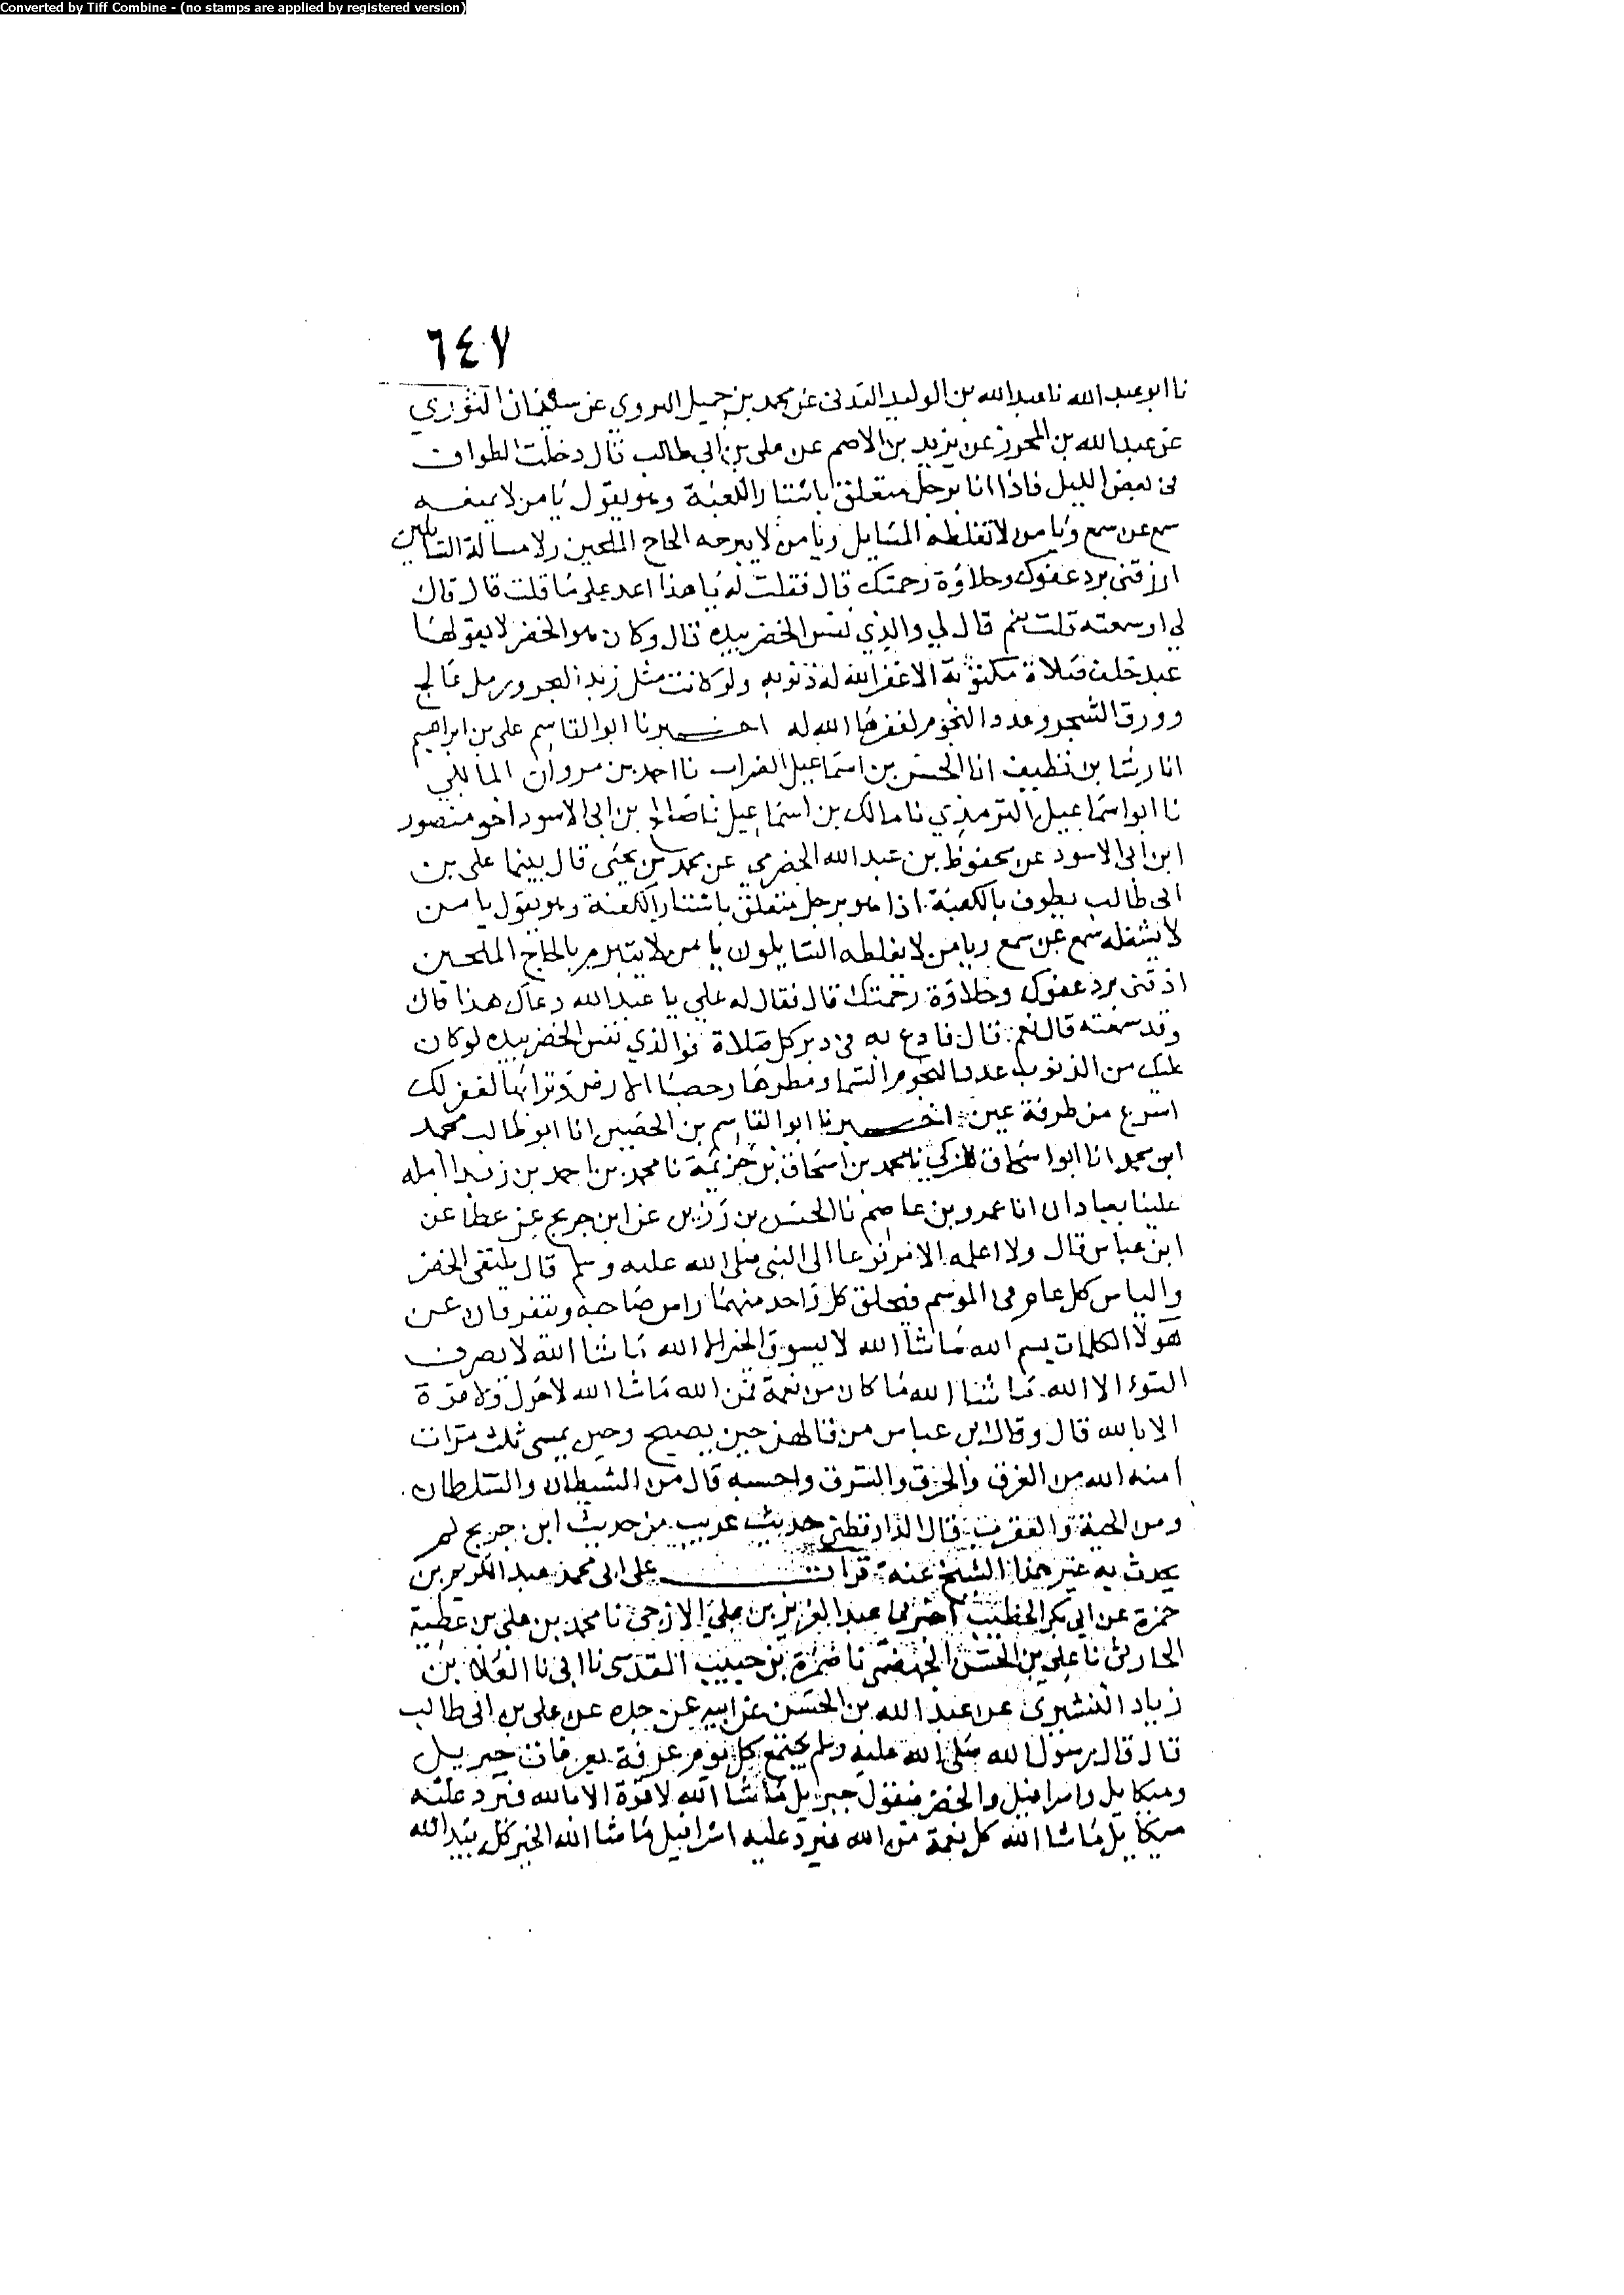 Converted by Tiff Combine - (no stamps are applied by registered version)
٦٤٧
نا ابو عبد الله نا عبد الله بن الوليد العدنى عن محمد بن جميل الهروي عن سفيان الثوري
عن عبد الله بن المحرز عن يزيد بن الاصم عن على بن ابى طالب قال دخلت الطواف
فى بعض الليل فاذا انا برجل متعلق باستار الكعبة وهو يقول يا من لا يمنعه
سمع عن سمع ويا من لا تغلطه المسايل ويا من لا يبرحه الحاح الملحين ولا مسالة السايلين
ارزقنى برد عفوك وحلاوة رحمتك قال فقلت له يا هذا اعد على ما قلت قال قال
لي او سمعته قلت نعم قال لي والذي نفس الخضر بيده قال وكان هو الخضر لا يقولها
عبد خلف صلاة مكتوبة الا غفر الله له ذنوبه ولو كانت مثل زبد البحر ورمل عالج
وورق الشجر وعدد النجوم لغفرها الله له اخبرنا ابو القاسم على بن ابراهيم
انا رشا بن نظيف انا الحسن بن اسماعيل الضراب نا احمد بن مروان المالكي
نا ابو اسماعيل الترمذي نا مالك بن اسماعيل نا صالح بن ابى الاسود اخو منصور
ابن ابى الاسود عن محفوظ بن عبد الله الحضرمي عن محمد بن يحيى قال بينما على بن
ابى طالب يطوف بالكعبة اذا هو برجل متعلق باستار الكعبة وهو يقول يا من
لا يشغله سمع عن سمع ويا من لا يغلطه السايلون يا من لا يتبرم بالحاح الملحين
اذقنى برد عفوك وحلاوة رحمتك قال فقال له علي يا عبد الله دعاك هذا قال
وقد سمعته قال نعم قال فادع به فى دبر كل صلاة فوالذي نفس الخضر بيده لو كان
عليك من الذنوب عدد نجوم السما ومطرها وحصبا الارض وترابها لغفر لك
اسرع من طرفة عين اخبرنا ابو القاسم بن الحصين انا ابو طالب محمد
ابن محمد انا ابو اسحاق المزكي نا محمد بن اسحاق بن خزيمة نا محمد بن احمد بن زبدا امله
علينا بعبادان انا عمرو بن عاصم نا الحسن بن رزين عن ابن جريج عن عطا عن
ابن عباس قال ولا اعلمه الا مرفوعا الى النبى صلى الله عليه وسلم قال يلتقى الخضر
والياس كل عام فى الموسم فيحلق كل واحد منهما راس صاحبه ويتفرقان عن
هولا الكلمات بسم الله ما شا الله لا يسوق الخير الا الله ما شا الله لا يصرف
السوء الا الله ما شا الله ما كان من نعمة فمن الله ما شا الله لا حول ولا قوة
الا بالله قال وقال ابن عباس من قالهن حين يصبح وحين يمسى ثلث مرات
امنه الله من الغرق والحرق والسرق واحسبه قال من الشيطان والسلطان
ومن الحية والعقرب قال الدارقطنى حديث غريب من حديث ابن جريج لم
يحدث به غير هذا الشيخ عنه قرات على ابى محمد عبد الكريم بن
حمزة عن ابى بكر الخطيب اخبرنا عبد العزيز بن علي الازجى نا محمد بن على بن عطية
الحارثى نا على بن الحسن الجهضمى نا ضمرة بن حبيب المقدسى نا ابى نا العلا بن
زياد القشيرى عن عبد الله بن الحسن عن ابيه عن جده عن على بن ابى طالب
قال قال رسول الله صلى الله عليه وسلم يجتمع كل يوم عرفة بعرفات جبريل
وميكايل واسرافيل والخضر فيقول جبريل ما شا الله لا قوة الا بالله فيرد عليه
ميكايل ما شا الله كل نعمة من الله فيرد عليه اسرافيل ما شا الله الخير كله بيد الله